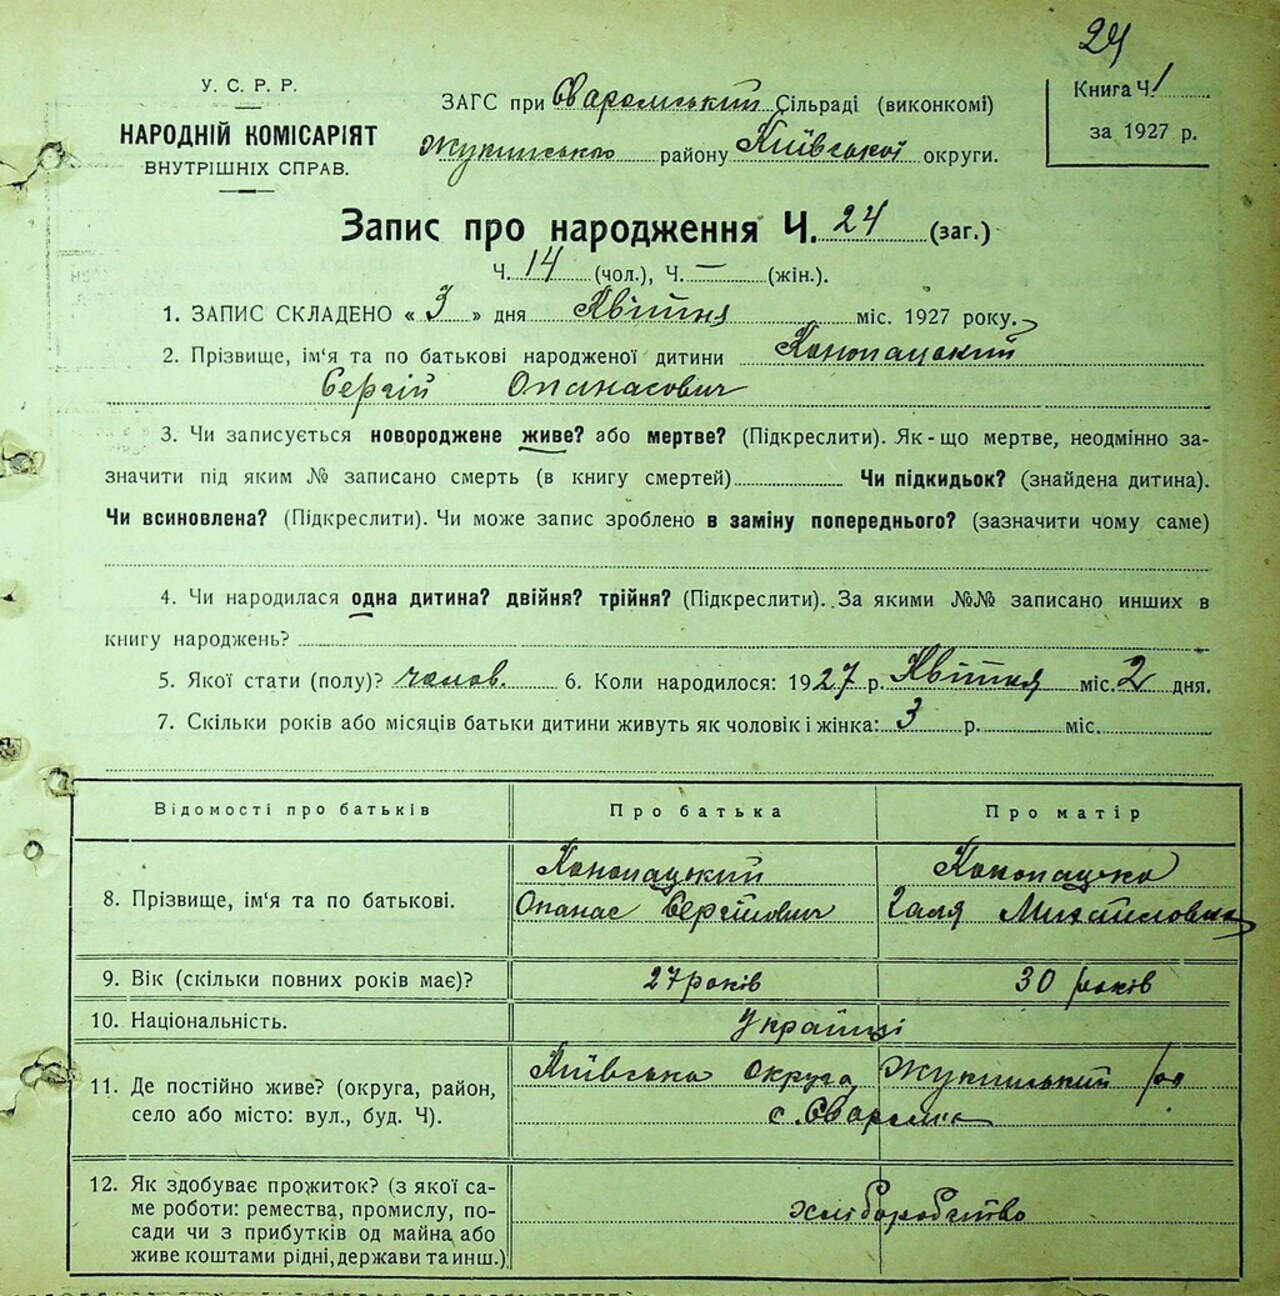 24
У. С. Р. Р.
НАРОДНІЙ КОМІСАРІЯТ
ВНУТРІШНІХ СПРАВ.
ЗАГС при Сваромський Сільраді (виконкомі)
Жукинського району Київської округи.
Книга Ч. 1
за 1927 р.
Запис про народження Ч. 24 (заг.)
Ч. 14 (чол.), Ч. — (жін.).
1. ЗАПИС СКЛАДЕНО « 3 » дня Квітня міс. 1927 року.
2. Прізвище, ім‘я та по батькові народженої дитини Конопацький
Сергій Опанасович
3. Чи записується новороджене живе? або мертве? (Підкреслити). Як-що мертве, неодмінно за-
значити під яким № записано смерть (в книгу смертей) Чи підкидьок? (знайдена дитина).
Чи всиновлена? (Підкреслити). Чи може запис зроблено в заміну попереднього? (зазначити чому саме)
4. Чи народилася одна дитина? двійня? трійня? (Підкреслити). За якими №№ записано инших в
книгу народжень?
5. Якої стати (полу)? чолов. 6. Коли народилося: 1927 р. Квітня міс. 2 дня.
7. Скільки років або місяців батьки дитини живуть як чоловік і жінка: 3 р. міс.
Відомості про батьків Про батька Про матір
8. Прізвище, ім‘я та по батькові. Конопацький Опанас Сергійович Конопацка Галя Михайловна
9. Вік (скільки повних років має)? 27 років 30 років
10. Національність. Українці
11. Де постійно живе? (округа, район, Київська округа, Жукинський р-н
село або місто: вул., буд. Ч). с. Сваромя
12. Як здобуває прожиток? (з якої са-
ме роботи: ремества, промислу, по- хліборобство
сади чи з прибутків од майна або
живе коштами рідні, держави та инш.)